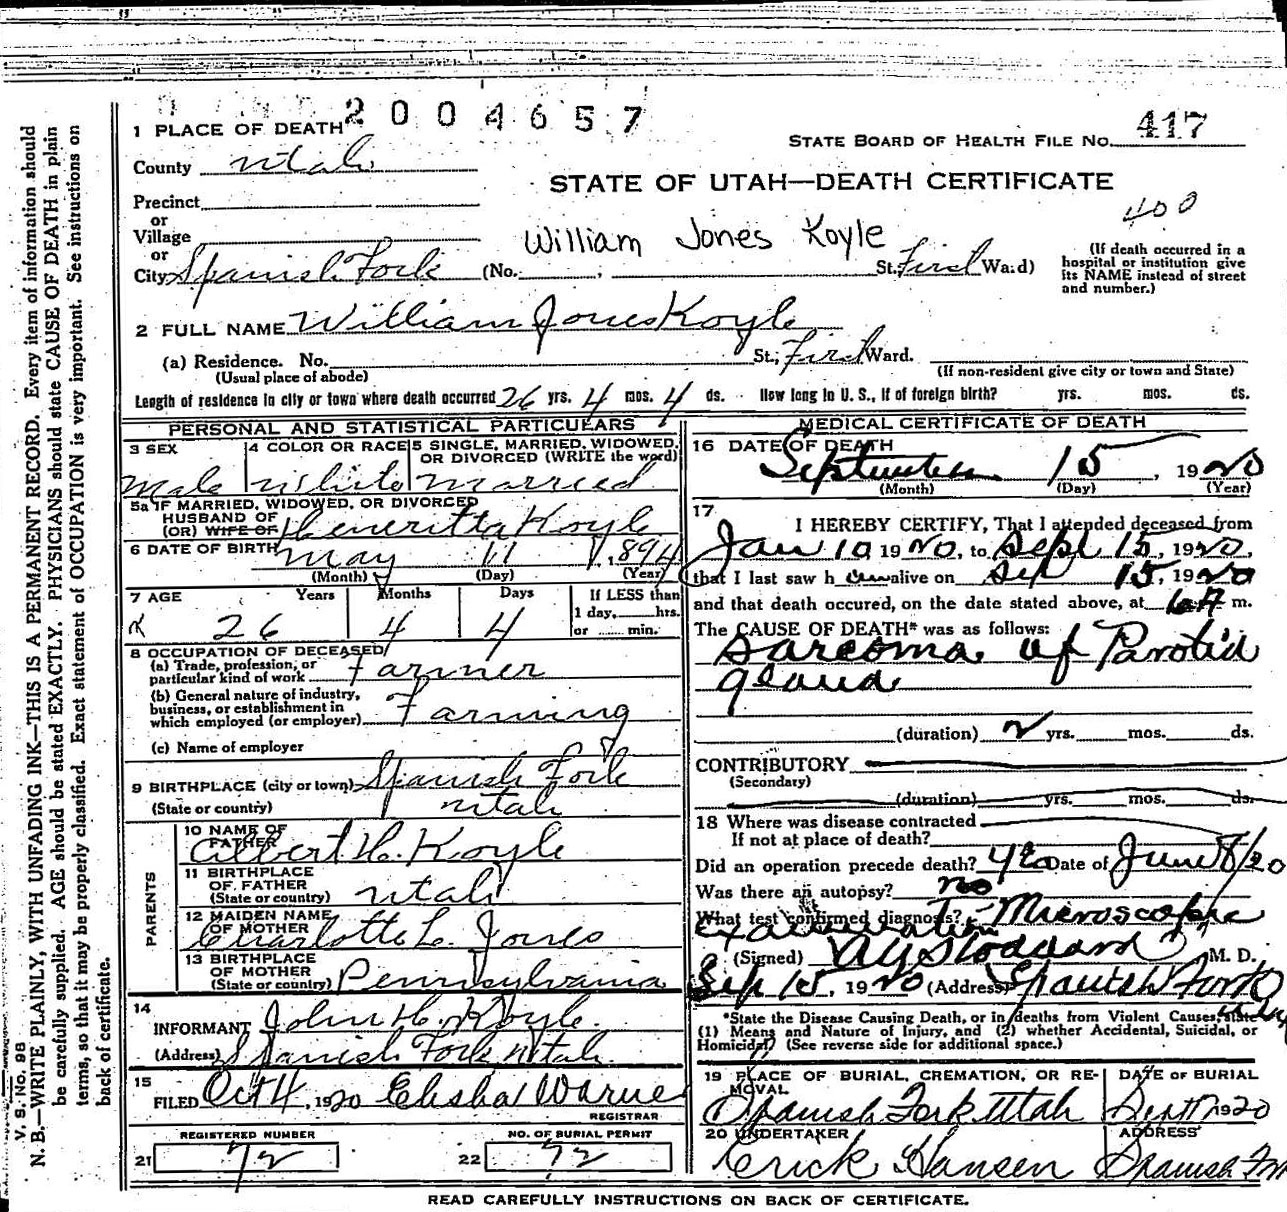 2004657
1 PLACE OF DEATH
STATE BOARD OF HEALTH FILE No. 417
County Utah
STATE OF UTAH—DEATH CERTIFICATE
400
Precinct
or
Village
or
William Jones Koyle
City Spanish Fork (No. ; St. First Ward)
(If death occurred in a
hospital or institution give
its NAME instead of street
and number.)
2 FULL NAME William Jones Koyle
(a) Residence. No. St.; First Ward.
(Usual place of abode)
(If non-resident give city or town and State)
Length of residence in city or town where death occurred 26 yrs. 4 mos. 4 ds. How long in U. S., if of foreign birth? yrs. mos. ds.
PERSONAL AND STATISTICAL PARTICULARS
3 SEX
Male
4 COLOR OR RACE
White
5 SINGLE, MARRIED, WIDOWED,
OR DIVORCED (WRITE the word)
Married
5a IF MARRIED, WIDOWED, OR DIVORCED
HUSBAND OF
(OR) WIFE OF Heneritta Koyle
6 DATE OF BIRTH May 11, 1894
(Month) (Day) (Year)
7 AGE Years Months Days If LESS than
1 day, hrs.
26 4 4 or min.
8 OCCUPATION OF DECEASED
(a) Trade, profession, or
particular kind of work Farmer
(b) General nature of industry,
business, or establishment in
which employed (or employer) Farming
(c) Name of employer
9 BIRTHPLACE (city or town) Spanish Fork
(State or country) Utah
PARENTS
10 NAME OF
FATHER Albert H. Koyle
11 BIRTHPLACE
OF FATHER
(State or country) Utah
12 MAIDEN NAME
OF MOTHER Charlotte L. Jones
13 BIRTHPLACE
OF MOTHER
(State or country) Pennsylvania
14
INFORMANT John H. Koyle
(Address) Spanish Fork Utah
15
FILED Oct 4, 1920 Elisha Warner
REGISTRAR
REGISTERED NUMBER
21 72
NO. OF BURIAL PERMIT
22 72
MEDICAL CERTIFICATE OF DEATH
16 DATE OF DEATH
September 15, 1920
(Month) (Day) (Year)
17
I HEREBY CERTIFY, That I attended deceased from
Jan 10 1920, to Sept 15, 1920,
that I last saw h im alive on Sep 15, 1920
and that death occured, on the date stated above, at 6 A m.
The CAUSE OF DEATH* was as follows:
Sarcoma of Parotid
gland
(duration) 2 yrs. mos. ds.
CONTRIBUTORY
(Secondary)
(duration) yrs. mos. ds.
18 Where was disease contracted
If not at place of death?
Did an operation precede death? yes Date of June 8/20
Was there an autopsy? no
What test confirmed diagnosis? Microscopic
Examination
(Signed) Stoddard, M. D.
Sep 15, 1920 (Address) Spanish Fork
*State the Disease Causing Death, or in deaths from Violent Causes, state
(1) Means and Nature of Injury, and (2) whether Accidental, Suicidal, or
Homicidal. (See reverse side for additional space.)
19 PLACE OF BURIAL, CREMATION, OR RE-
MOVAL
Spanish Fork Utah
DATE OF BURIAL
Sept 17 1920
20 UNDERTAKER
Erick Hansen
ADDRESS
Spanish Fork
READ CAREFULLY INSTRUCTIONS ON BACK OF CERTIFICATE.
V. S. No. 98
N. B.—WRITE PLAINLY, WITH UNFADING INK—THIS IS A PERMANENT RECORD. Every item of information should
be carefully supplied. AGE should be stated EXACTLY. PHYSICIANS should state CAUSE OF DEATH in plain
terms, so that it may be properly classified. Exact statement of OCCUPATION is very important. See instructions on
back of certificate.